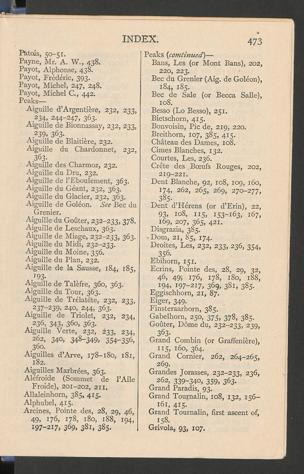 INDEX.
473
Patois, 50-51.
Payne, Mr. A. W., 438.
Payot, Alphonse, 438.
Payot, Frédéric, 393.
Payot, Michel, 247, 248.
Payot, Michel C., 442.
Peaks—
Aiguille d'Argentière, 232, 233,
234, 244-247, 363.
Aiguille de Bionnassay, 232, 233,
239, 363.
Aiguille de Blaitière, 232.
Aiguille du Chardonnet, 232,
363.
Aiguille des Charmoz, 232.
Aiguille du Dru, 232.
Aiguille de l'Eboulement, 363.
Aiguille du Géant, 232, 363.
Aiguille du Glacier, 232, 363.
Aiguille de Goléon. See Bec du
Grenier.
Aiguille du Goûter, 232-233, 378.
Aiguille de Leschaux, 363.
Aiguille de Miage, 232-233, 363.
Aiguille du Midi, 232-233.
Aiguille du Moine, 356.
Aiguille du Plan, 232.
Aiguille de la Sausse, 184, 185,
193.
Aiguille de Taléfre, 360, 363.
Aiguille du Tour, 363.
Aiguille de Trélatête, 232, 233,
237-239, 240, 244, 363.
Aiguille de Triolet, 232, 234,
236, 343, 360, 363.
Aiguille Verte, 232, 233, 234,
262, 340, 348-349, 354-356,
360.
Aiguilles d'Arve, 178-180, 181,
182.
Aiguilles Marbrées, 363.
Aléfroide (Sommet de l'Aile
Froide), 201-202, 211.
Allaleinhorn, 385, 415.
Alphubel, 415.
Arcines, Pointe des, 28, 29, 46,
49, 176, 178, 180, 188, 194,
197-217, 369, 381, 385.
Peaks (continued)—
Bans, Les (or Mont Bans), 202,
220, 223.
Bec du Grenier (Aig. de Goléon),
184, 185.
Bec de Sale (or Becca Salle),
108.
Besso (Lo Besso), 251.
Bietschorn, 415.
Bonvoisin, Pic de, 219, 220.
Breithorn, 107, 385, 415.
Château des Dames, 108.
Cimes Blanches, 132.
Courtes, Les, 236.
Crête des Bœufs Rouges, 202,
219-221.
Dent Blanche, 92, 108, 109, 160,
174, 262, 265, 269, 270-277,
385.
Dent d'Hérens (or d'Erin), 22,
93, 108, 115, 153-163, 167,
169, 207, 365, 421.
Disgrazia, 385.
Dom, 21, 85, 174.
Droites, Les, 232, 233, 236, 354,
356.
Ebihorn, 151.
Ecrins, Pointe des, 28, 29, 32,
46, 49, 176, 178, 180, 188,
194, 197-217, 369, 381, 385.
Eggischorn, 21, 87.
Eiger, 349.
Finsteraarhorn, 385.
Gabelhorn, 250, 375, 378, 385.
Goûter, Dôme du, 232-233, 239,
363.
Grand Combin (or Graffenière),
115, 160, 364.
Grand Cornier, 262, 264-265,
269.
Grandes Jorasses, 232-233, 236,
262, 339-340, 359, 363.
Grand Paradis, 93.
Grand Tournalin, 108, 132, 156-
161, 415.
Grand Tournalin, first ascent of,
158.
Grivola, 93, 107.